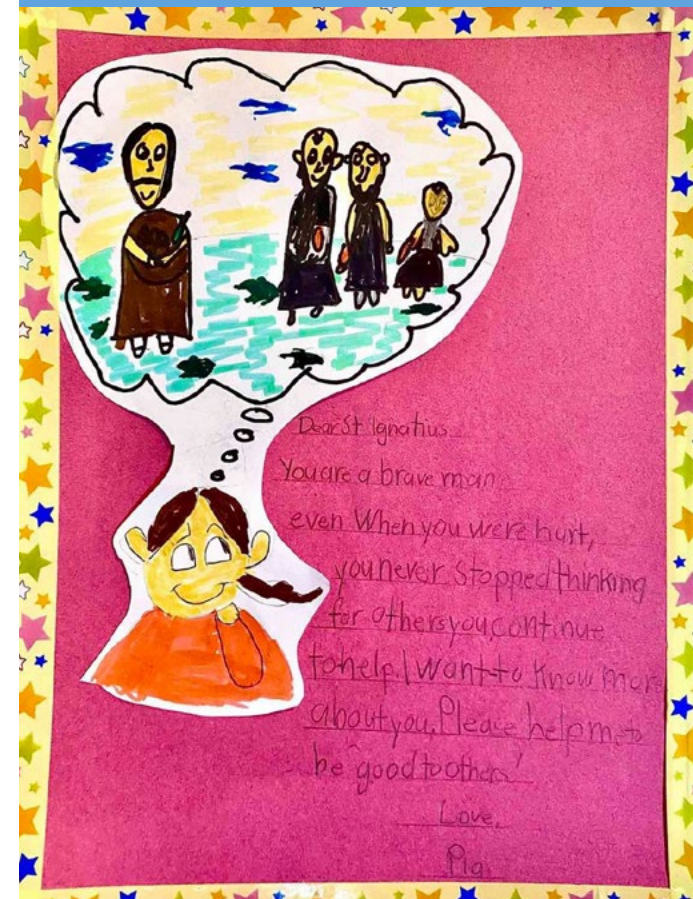 Dear St Ignatius
You are a brave man
even When you were hurt,
you never stopped thinking
for others you continue
to help. I want to know more
about you. Please help me to
be good to others
Love,
Pia